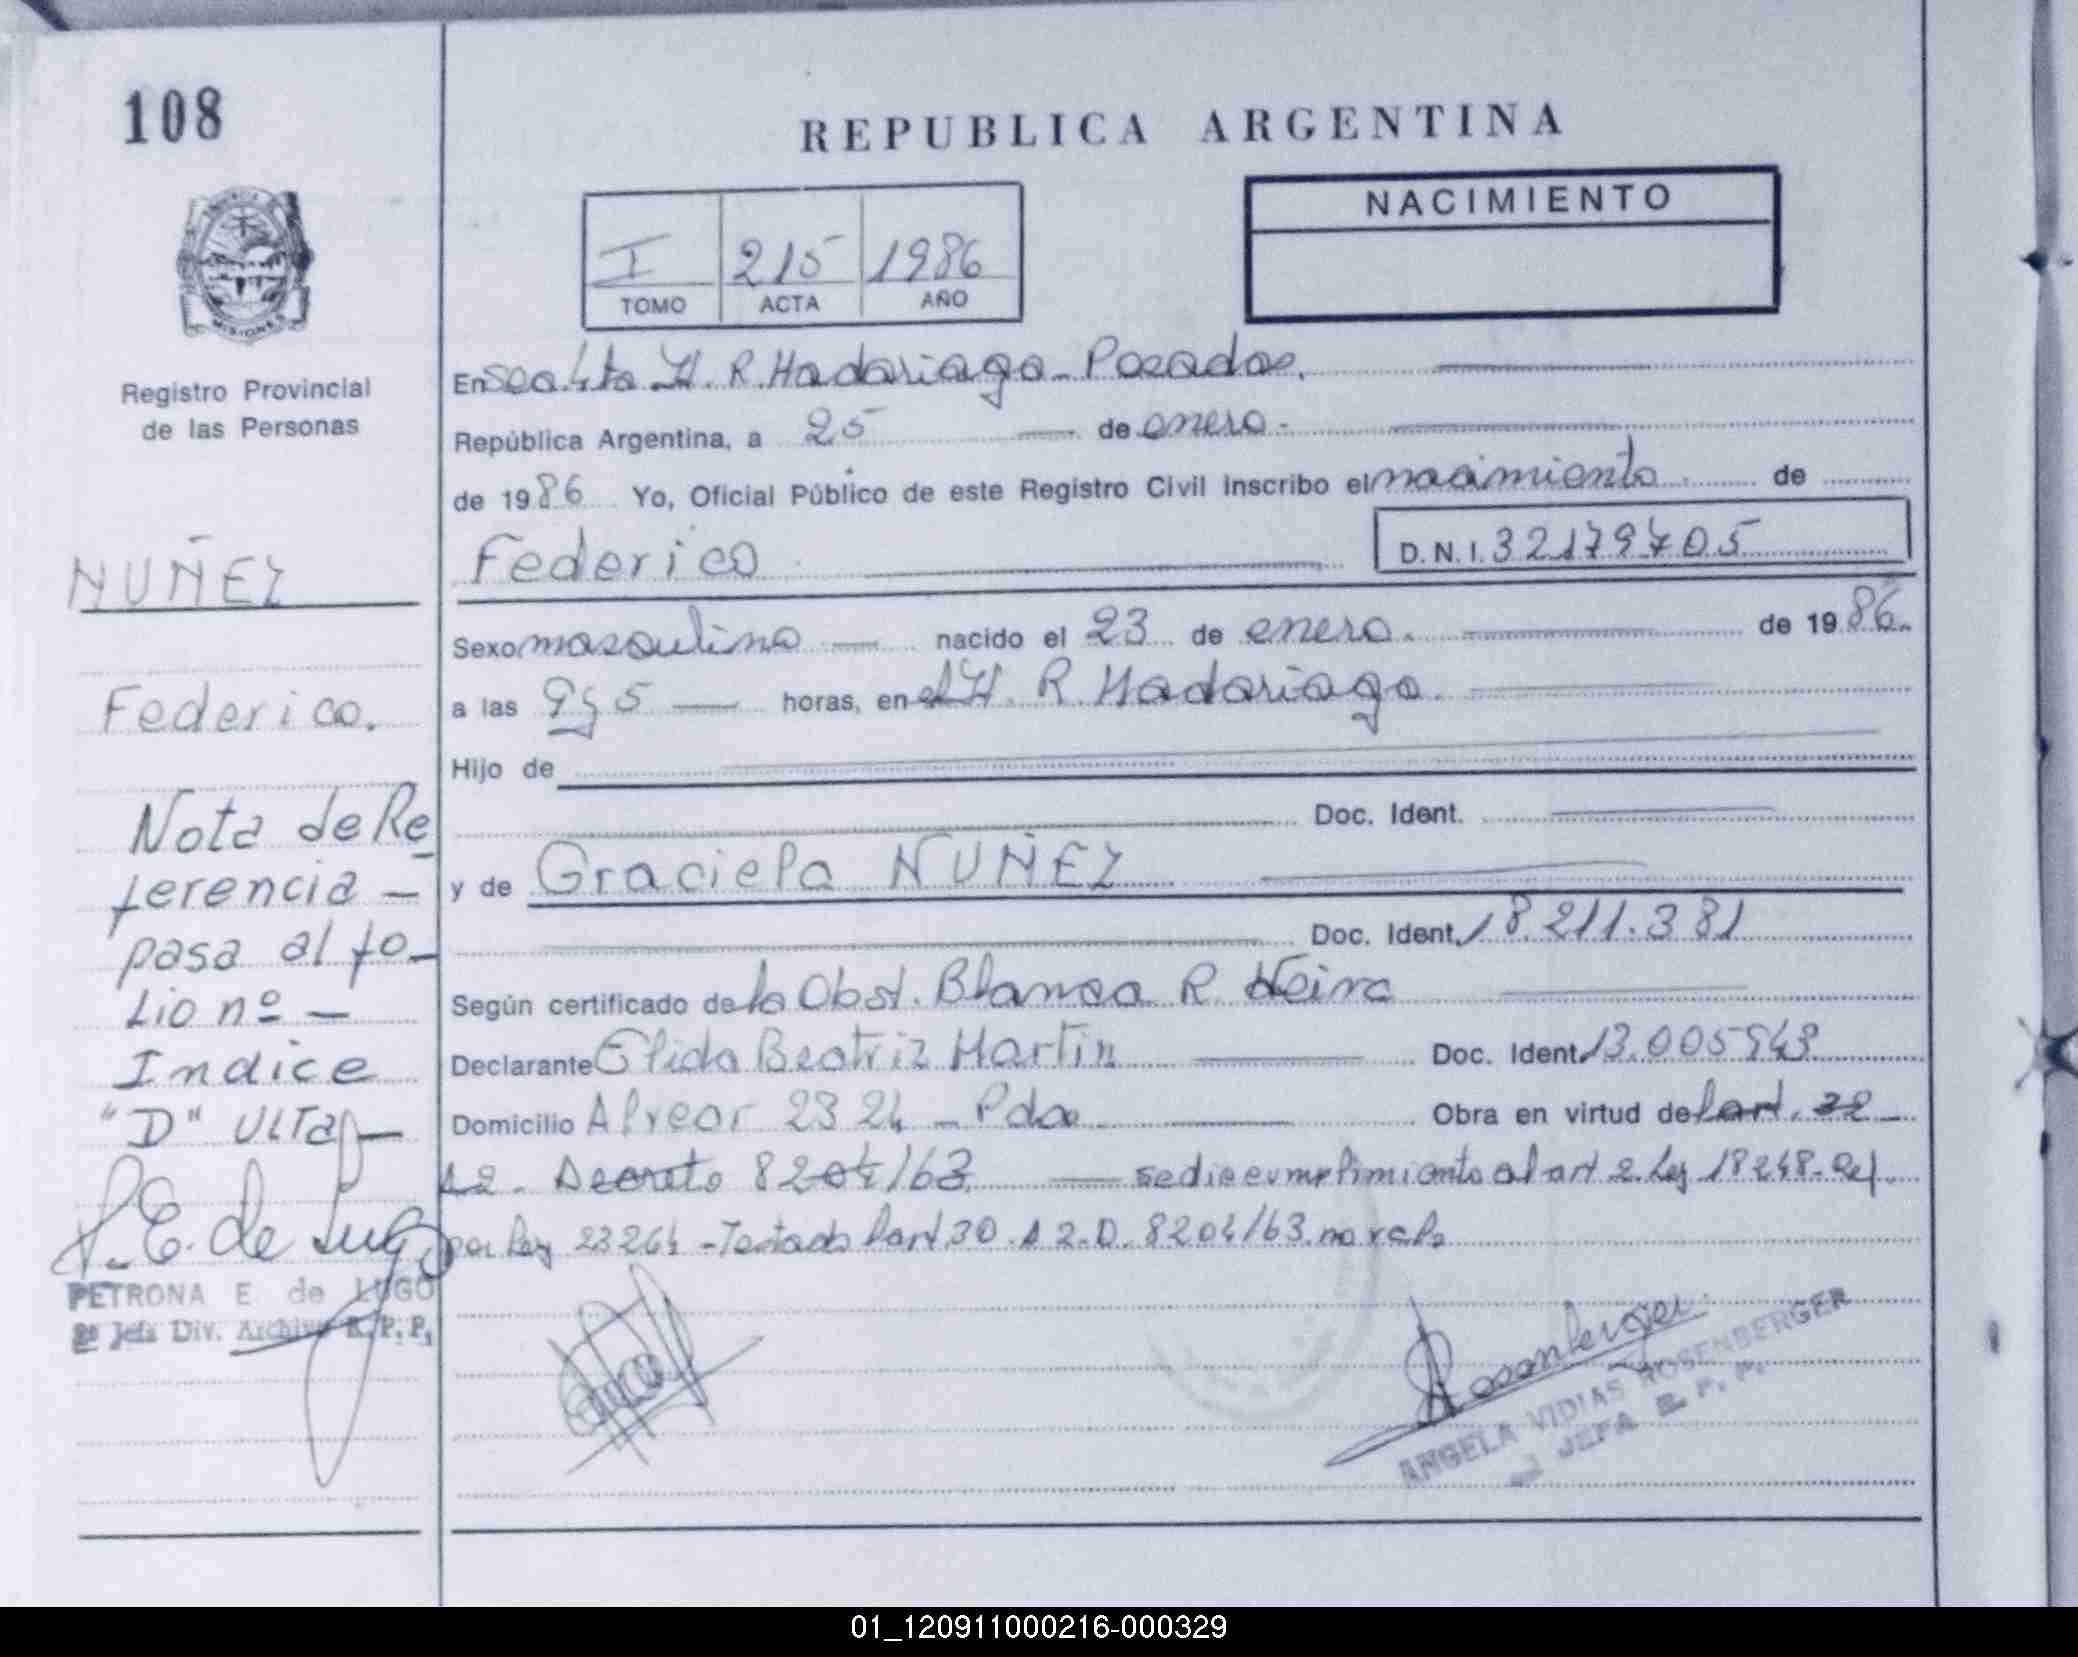 108
REPUBLICA ARGENTINA
NACIMIENTO
I 215 1986
TOMO ACTA AÑO
MISIONES
Registro Provincial
de las Personas
En H. R. Madariaga - Posadas.
República Argentina, a 25 de enero -
de 1986 Yo, Oficial Público de este Registro Civil inscribo el nacimiento de
Federico
D.N.I. 32179705
NUÑEZ
Federico.
Sexo masculino nacido el 23 de enero. de 1986.
a las horas, en el H. R. Madariaga.
Hijo de
Doc. Ident.
y de Graciela NUÑEZ
Doc. Ident. 18.211.381
Según certificado de la Obst. Blanca R.
Declarante Elida Beatriz Martin Doc. Ident. 13.005943
Domicilio Alvear 2324 - Pdas Obra en virtud de l art.
A2. Decreto 8204/63 se dio cumplimiento al art 2 Ley 18248
por Ley 23264 - Testado l art 30 A 2. D. 8204/63 no vale
Nota de Re
ferencia -
pasa al fo-
lio nº -
Indice
"D" ulta
P. E. de Lugo
PETRONA E de LUGO
2º Jefa Div. Archivo R. P. P.
Rosenberger
ANGELA VIDIAS ROSENBERGER
JEFA R. P. P.
01_120911000216-000329